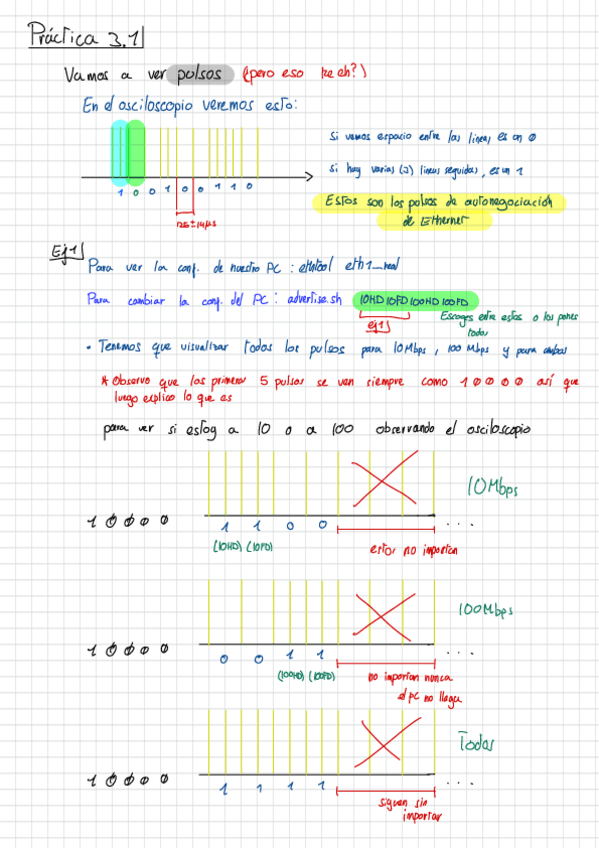 Práctica 3.1
Vamos a ver pulsos (pero eso ke eh?)
En el osciloscopio veremos esto:
Si vemos espacio entre las lineas es un 0
Si hay varias (3) lineas seguidas, es un 1
1 0 0 1 0 0 1 1 0
125 ± 14 µs
Estos son los pulsos de autonegociación
de Ethernet
Ej 1
Para ver la conf. de nuestro PC : ethtool eth1_real
Para cambiar la conf. del PC : advertise.sh 10HD 10FD 100HD 100FD
ej 1
Escoges entre estas o las pones
todas
• Tenemos que visualizar todos los pulsos para 10Mbps, 100 Mbps y para ambas
* Observo que los primeros 5 pulsos se ven siempre como 1 0 0 0 0 así que
luego explico lo que es
para ver si estoy a 10 o a 100 observando el osciloscopio
10Mbps
1 0 0 0 0 1 1 0 0 ...
(10HD) (10FD) estos no importan
100Mbps
1 0 0 0 0 0 0 1 1 ...
(100HD) (100FD) no importan nunca
el PC no llega
Todas
1 0 0 0 0 1 1 1 1 ...
siguen sin
importar